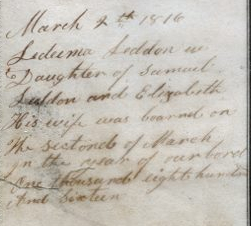 March 2th 1816
Ledeema Seddon w
Daughter of Samuel
Seddon and Elizabeth
His wife was boarnd on
The sectond of March
in the year of our bord
One thousand eight hundred
And Sixteen